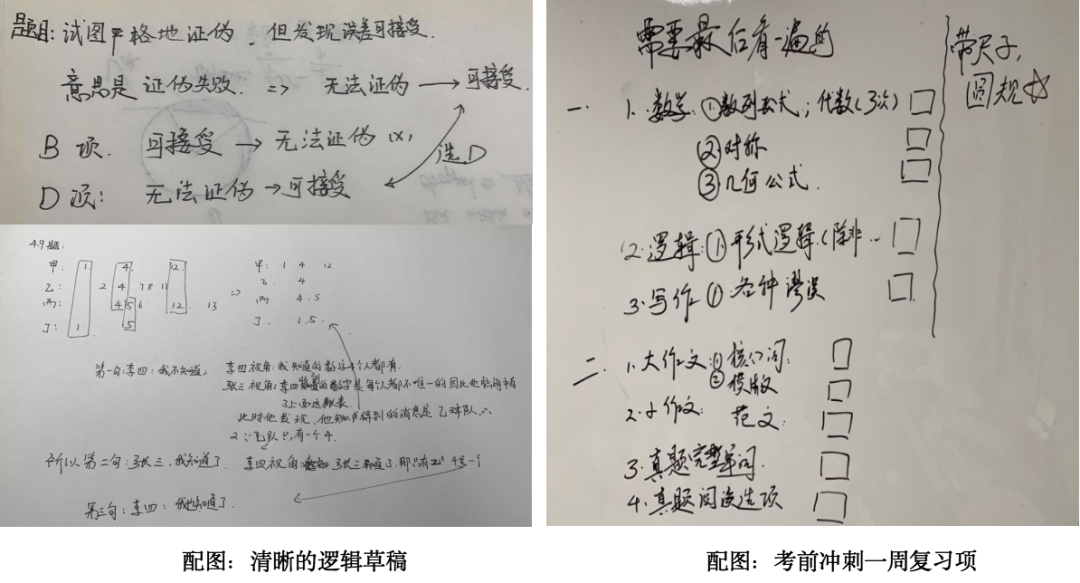 题目: 试图严格地证伪, 但发现误差可接受.
意思是 证伪失败. => 无法证伪 → 可接受.
B 项. 可接受 → 无法证伪 (x)
选D
D 项: 无法证伪 → 可接受
4.9题.
甲: 1 4 12
乙: 2 4 7 8 11
丙: 4 5 6 12 13
丁: 1 5
=>
甲: 1 4 12
乙 4
丙 4.5
丁 1.5.
第一句:李四:我不知道.
李四视角:我知道的数字每个人都有.
张三视角:李四知道的数字是每个人都不唯一的因此
3上面这数表.
此时他发现, 他知道的消息是乙球队,
2 ∵乙队只有一个4.
所以第二句:张三:我知道了. 李四视角 张三知道了.
第三句:李四:我也知道了.
配图：清晰的逻辑草稿
需要最后看一遍的
带尺子,
圆规☆
一. 1. 数学. ①数列公式; 代数(3次) □
②对称 □
③几何公式. □
2. 逻辑:① 形式逻辑.(除非.. □
3. 写作 ① 各种谬误 □
二. 1. 大作文:① 核心词: □
② 模版 □
2. 小作文: 范文: □
3. 真题完型单词. □
4. 真题阅读选项 □
配图：考前冲刺一周复习项